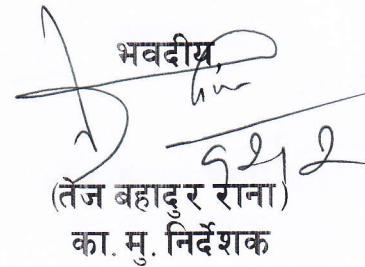 भवदीय,
(तेज बहादुर राना)
का. मु. निर्देशक